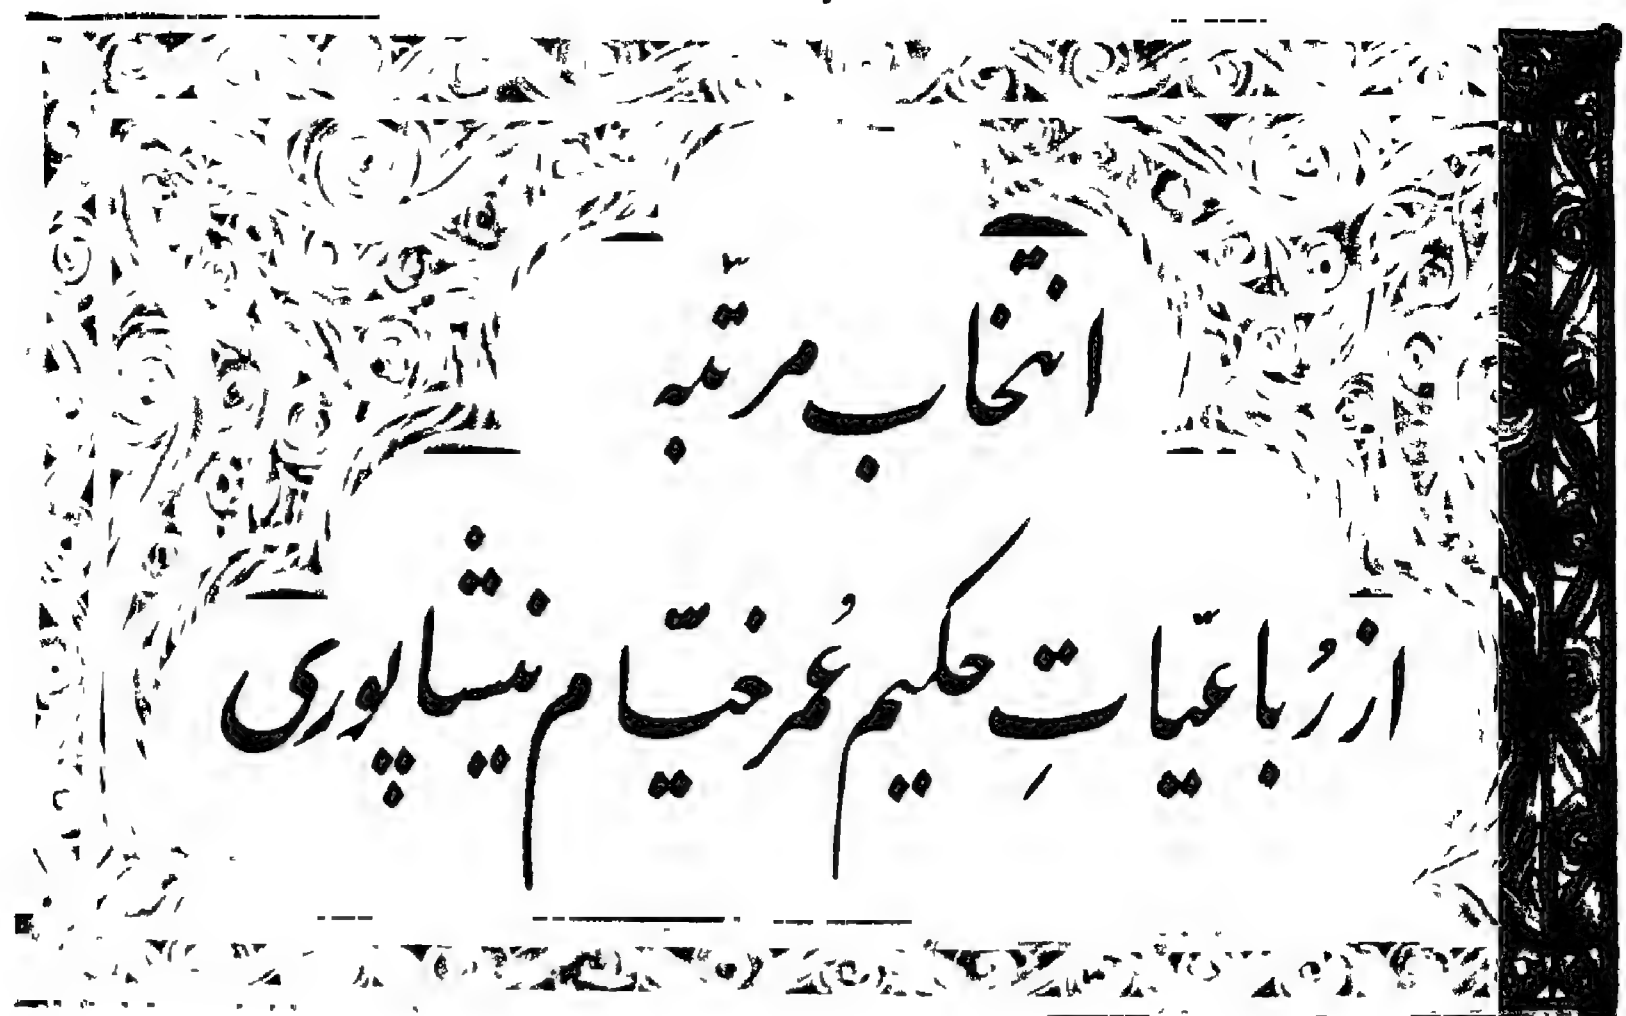 انتخاب مرتّبه
از رُباعیّاتِ حکیم عُمر خیّام نیشاپوری